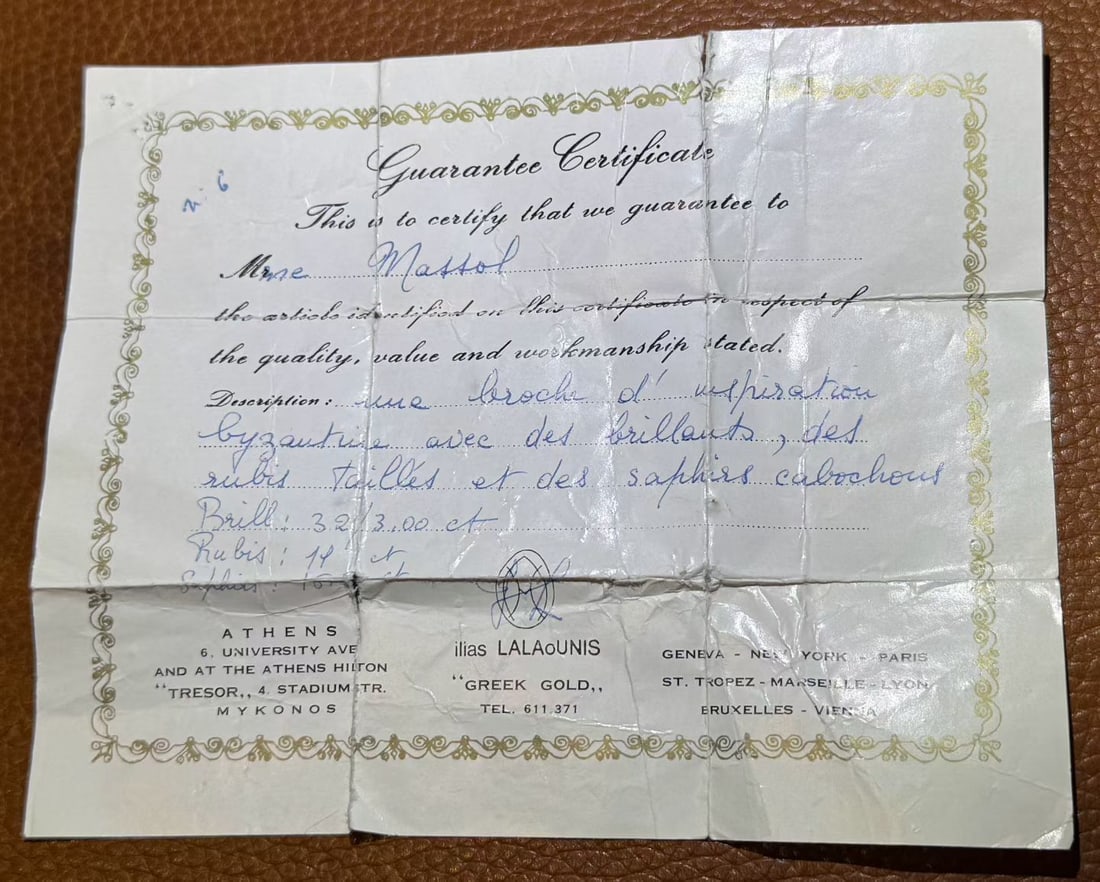 Guarantee Certificate
This is to certify that we guarantee to
Mrme Massol
the article identified on this certificate in respect of
the quality, value and workmanship stated.
Description: une broche d'inspiration
byzantine avec des brillants, des
rubis taillés et des saphirs cabochons
Brill: 32/3.00 ct
Rubis: 14 ct
Saphirs: ct
ATHENS
6, UNIVERSITY AVE
AND AT THE ATHENS HILTON
"TRESOR,, 4, STADIUM STR.
MYKONOS
ilias LALAoUNIS
"GREEK GOLD,,
TEL. 611.371
GENEVA - NEW YORK - PARIS
ST. TROPEZ - MARSEILLE - LYON
BRUXELLES - VIENNA